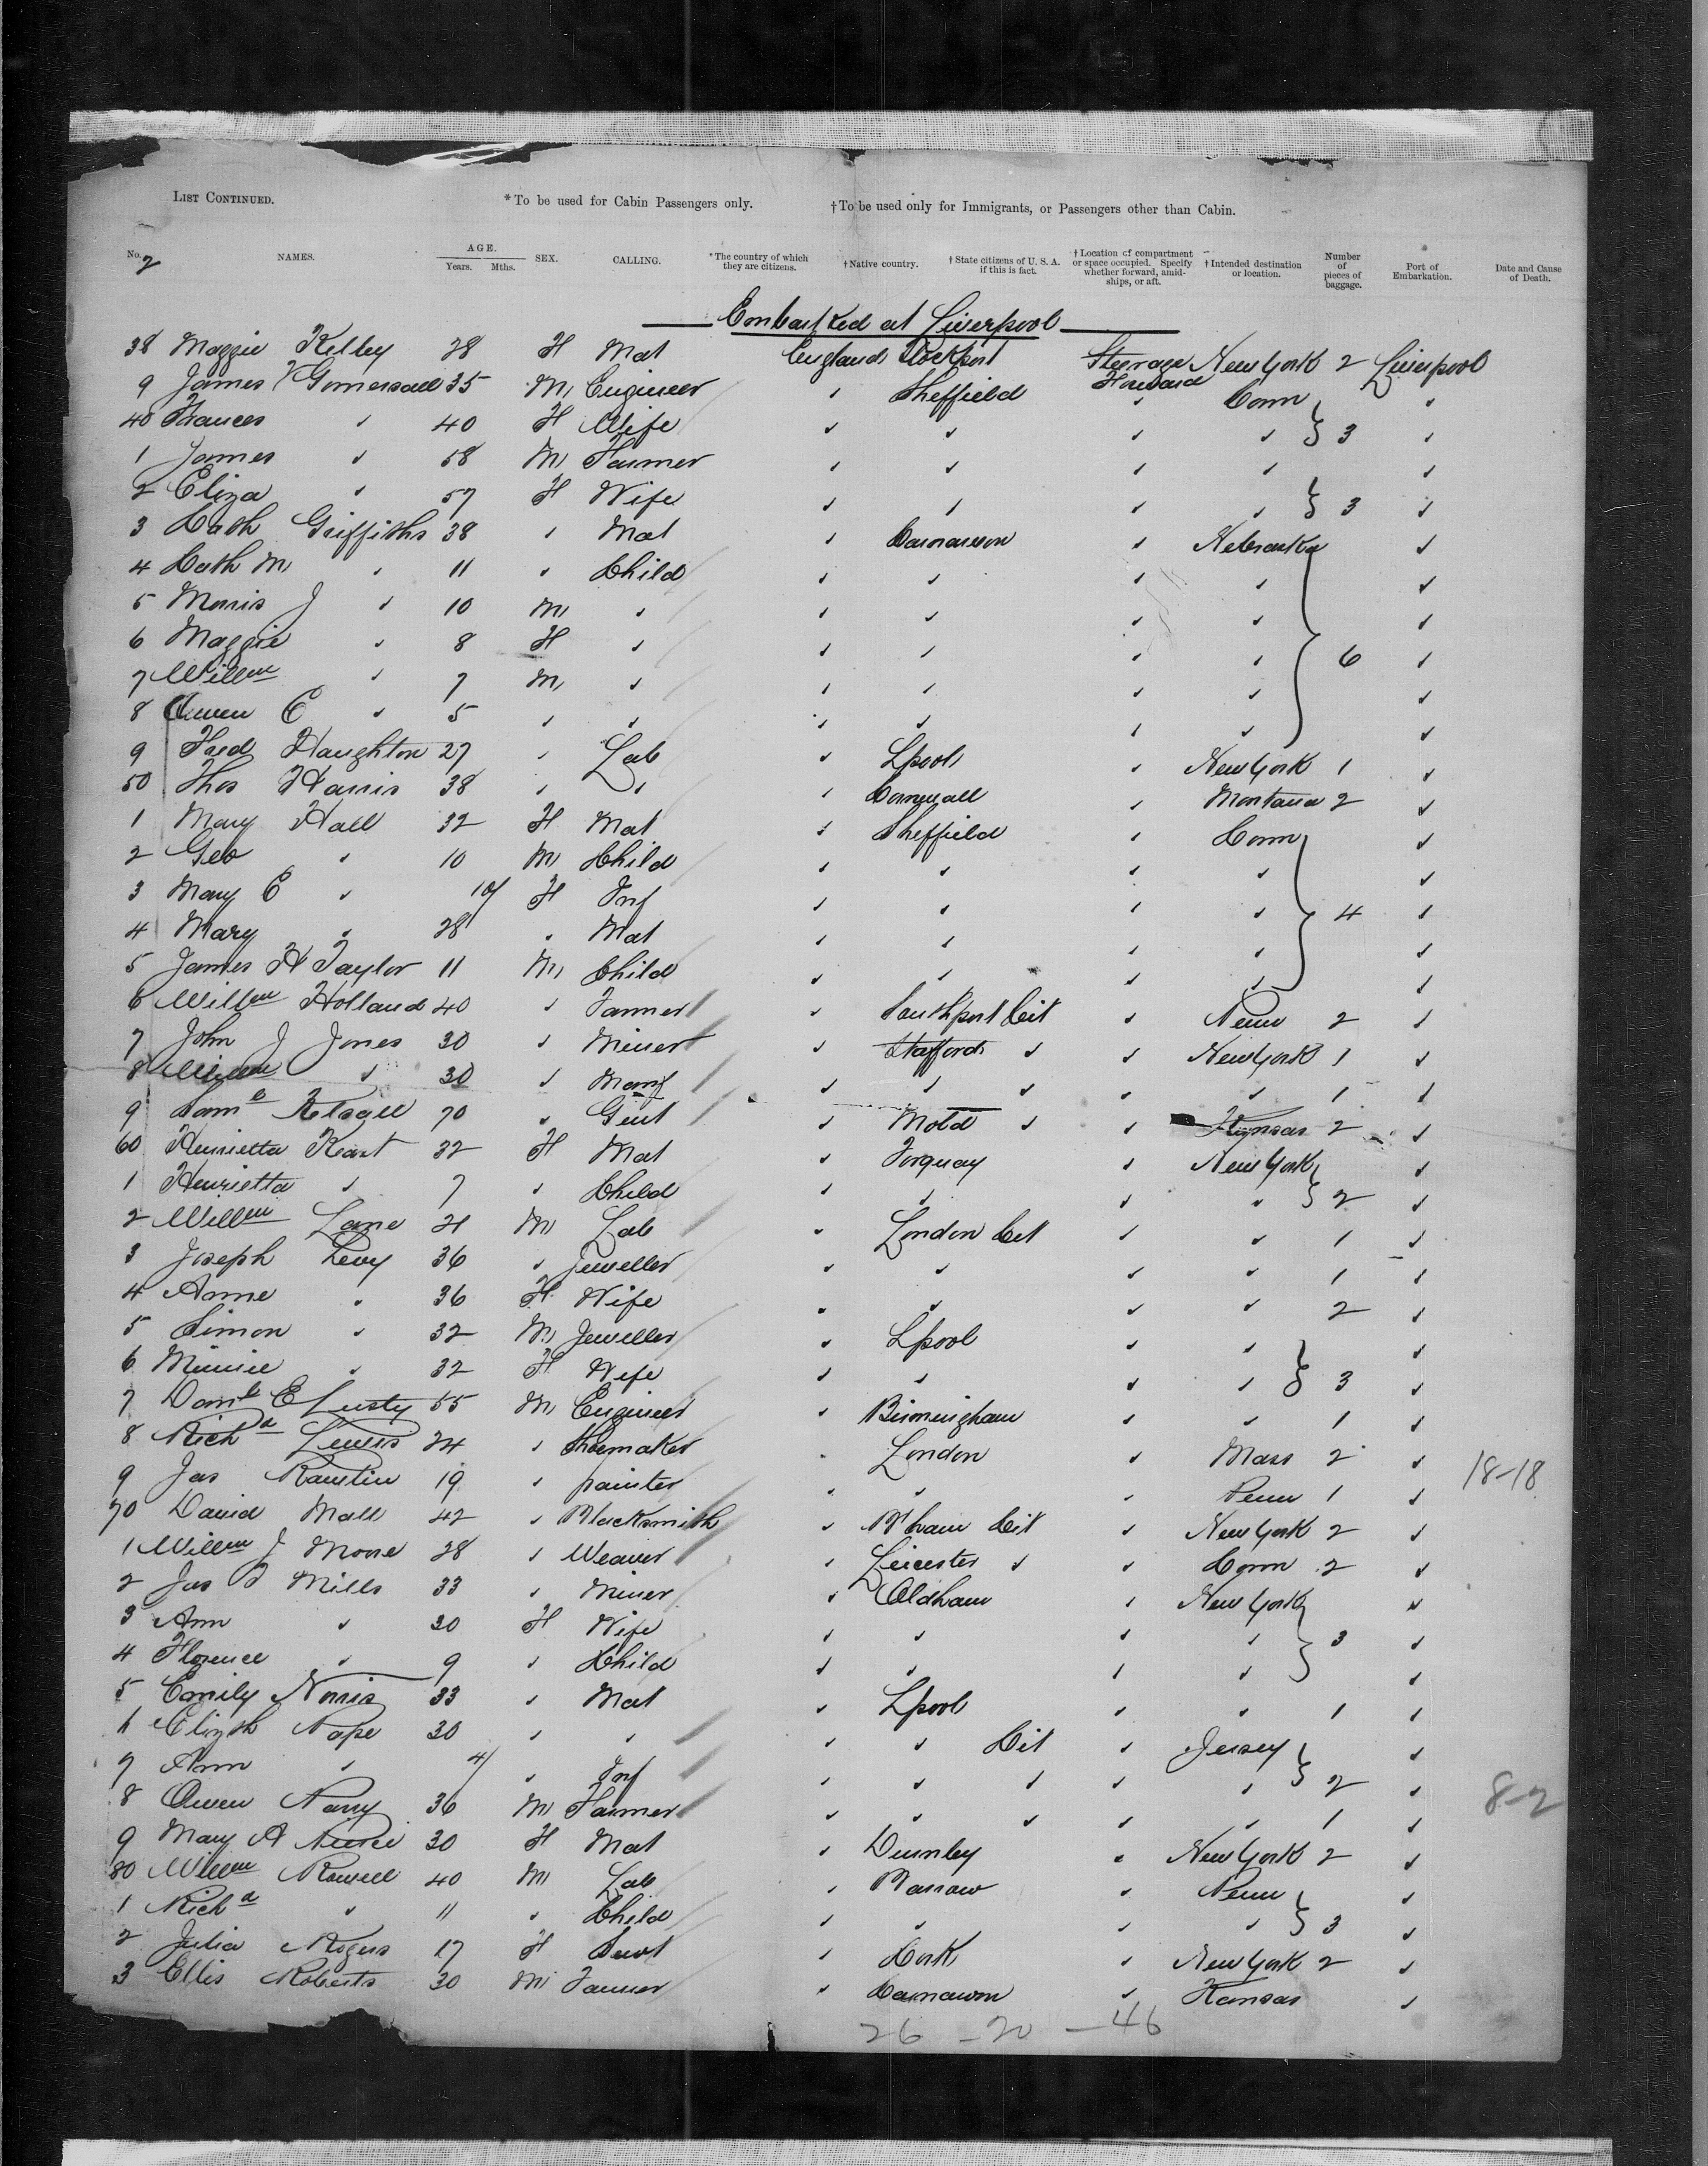 LIST CONTINUED. *To be used for Cabin Passengers only. †To be used only for Immigrants, or Passengers other than Cabin.
No. 2 NAMES. AGE. Years. Mths. SEX. CALLING. *The country of which they are citizens. †Native country. †State citizens of U. S. A. if this is fact. †Location of compartment or space occupied. Specify whether forward, amidships, or aft. †Intended destination or location. Number of pieces of baggage. Port of Embarkation. Date and Cause of Death.
Embarked at Liverpool
38 Maggie Kelley 28 F Mat England Stockport Steerage Forward New York 2 Liverpool
9 James Gomersall 35 M Engineer " Sheffield " Conn "
40 Frances " 40 F Wife " " " " 3 "
1 James " 58 M Farmer " " " " "
2 Eliza " 57 F Wife " " " " 3 "
3 Cath Griffiths 38 " Mat " Carnarvon " Nebraska "
4 Cath M " 11 " Child " " " " "
5 Morris J " 10 M " " " " " "
6 Maggie " 8 F " " " " " 6 "
7 Willm " 7 M " " " " " "
8 Owen E " 5 " " " " " " "
9 Fred Haughton 27 " Lab " Lpool " New York 1 "
50 Thos Harris 38 " " " Cornwall " Montana 2 "
1 Mary Hall 32 F Mat " Sheffield " Conn "
2 Geo " 10 M Child " " " " "
3 Mary E " 10/ F Inf " " " " 4 "
4 Mary " 28 " Mat " " " " "
5 James H Taylor 11 M Child " " " " "
6 Willm Holland 40 " Farmer " Southport Cit " Penn 2 "
7 John J Jones 30 " Miner " Stafford " " New York 1 "
8 Willm " 30 " Manf " " " " " 1 "
9 Saml Kelsall 70 " Gent " Mold " " Kansas 2 "
60 Henrietta Keast 32 F Mat " Torquay " New York "
1 Henrietta " 7 " Child " " " " 2 "
2 Willm Lane 21 M Lab " London Cit " " 1 "
3 Joseph Levy 36 " Jeweller " " " " 1 "
4 Anne " 36 F Wife " " " " 2 "
5 Simon " 32 M Jeweller " Lpool " " "
6 Minnie " 32 F Wife " " " " 3 "
7 Danl E Lusty 55 M Engineer " Birmingham " " 1 "
8 Richd Lewis 24 " Shoemaker " London " Mass 2 " 18-18
9 Jas Rawlin 19 " painter " " " Penn 1 "
70 David Mall 42 " Blacksmith " B'ham Cit " New York 2 "
1 Willm J Moore 28 " Weaver " Leicester " " Conn 2 "
2 Jas Mills 33 " Miner " Oldham " New York "
3 Ann " 30 F Wife " " " " 3 "
4 Florence " 9 " Child " " " " "
5 Emily Norris 33 " Mat " Lpool " " 1 "
6 Elizth Nape 30 " " " " Cit " Jersey "
7 Ann " 4/ " Inf " " " " " 2 "
8 Owen Narry 36 M Farmer " " " " " 1 " 8-2
9 Mary A 30 F Mat " " New York 2 "
80 Willm Rowell 40 M Lab " Barrow " Penn "
1 Richd " 11 " Child " " " " 3 "
2 Julia Rogers 17 F Servt " Cork " New York 2 "
3 Ellis Roberts 30 M Farmer " Carnarvon " Kansas "
26 - 20 - 46